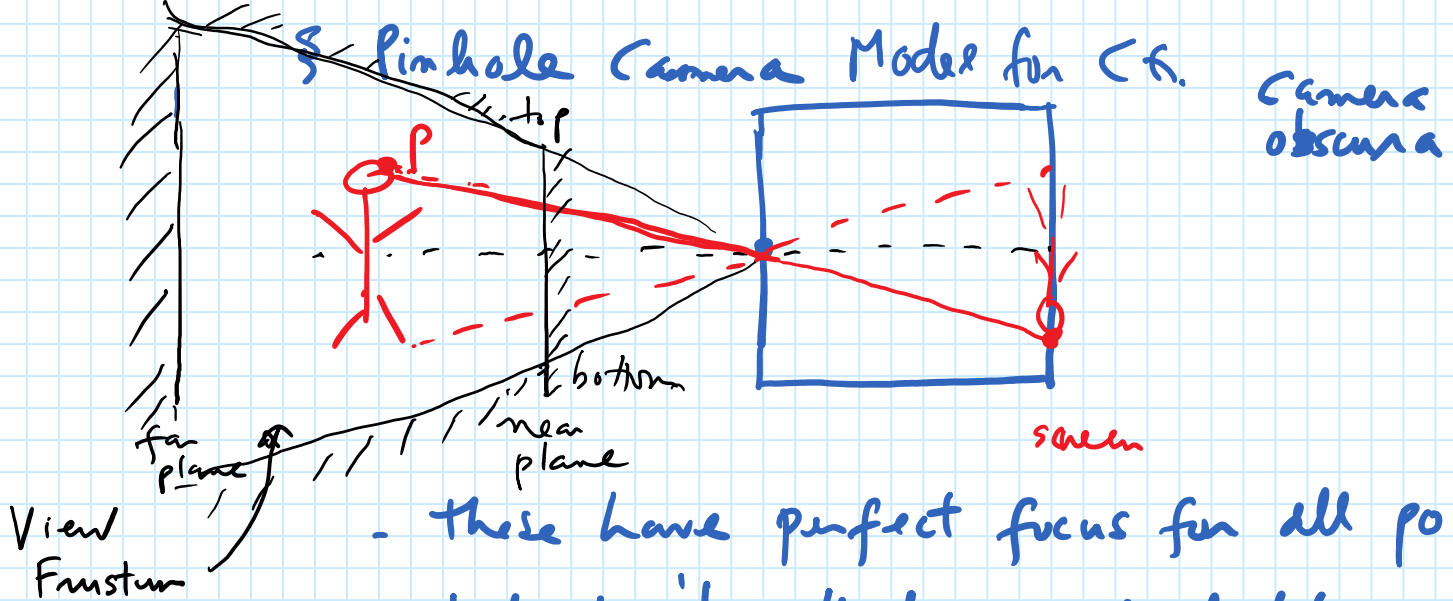 § Pinhole Camera Model for CG.
Camera
obscura
top
P
bottom
near
plane
far
plane
screen
View
Frustum
- these have perfect focus for all po